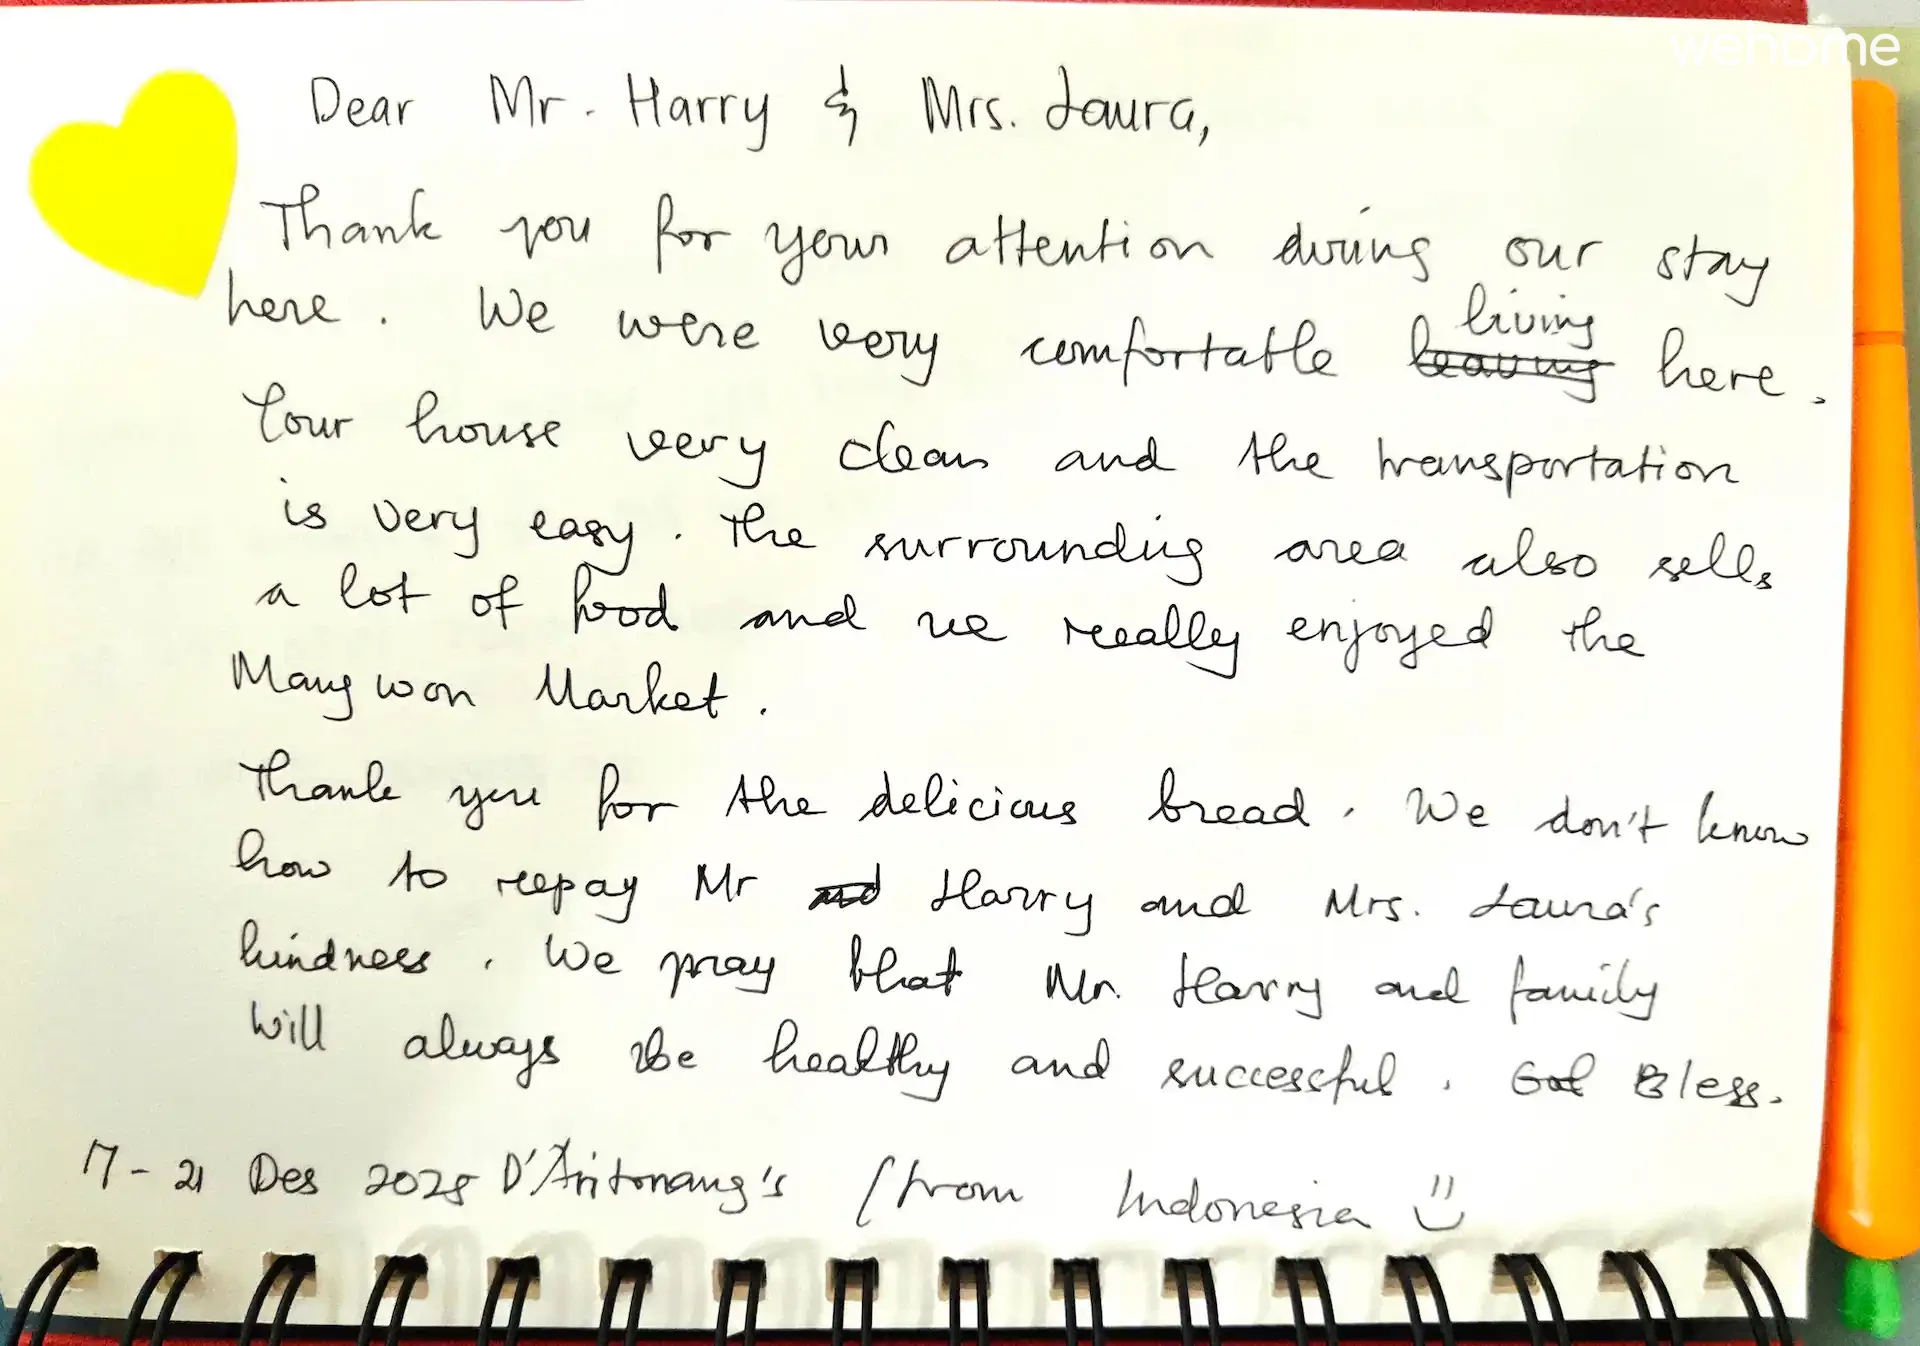 wehome
Dear Mr. Harry & Mrs. Laura,
Thank you for your attention during our stay
here. We were very comfortable living here.
Your house very clean and the transportation
is very easy. The surrounding area also sells
a lot of food and we really enjoyed the
Mangwon Market.
Thank you for the delicious bread. We don't know
how to repay Mr Harry and Mrs. Laura's
kindness. We pray that Mr. Harry and family
will always be healthy and successful. God Bless.
17-21 Des 2025 D'Aritonang's (from Indonesia